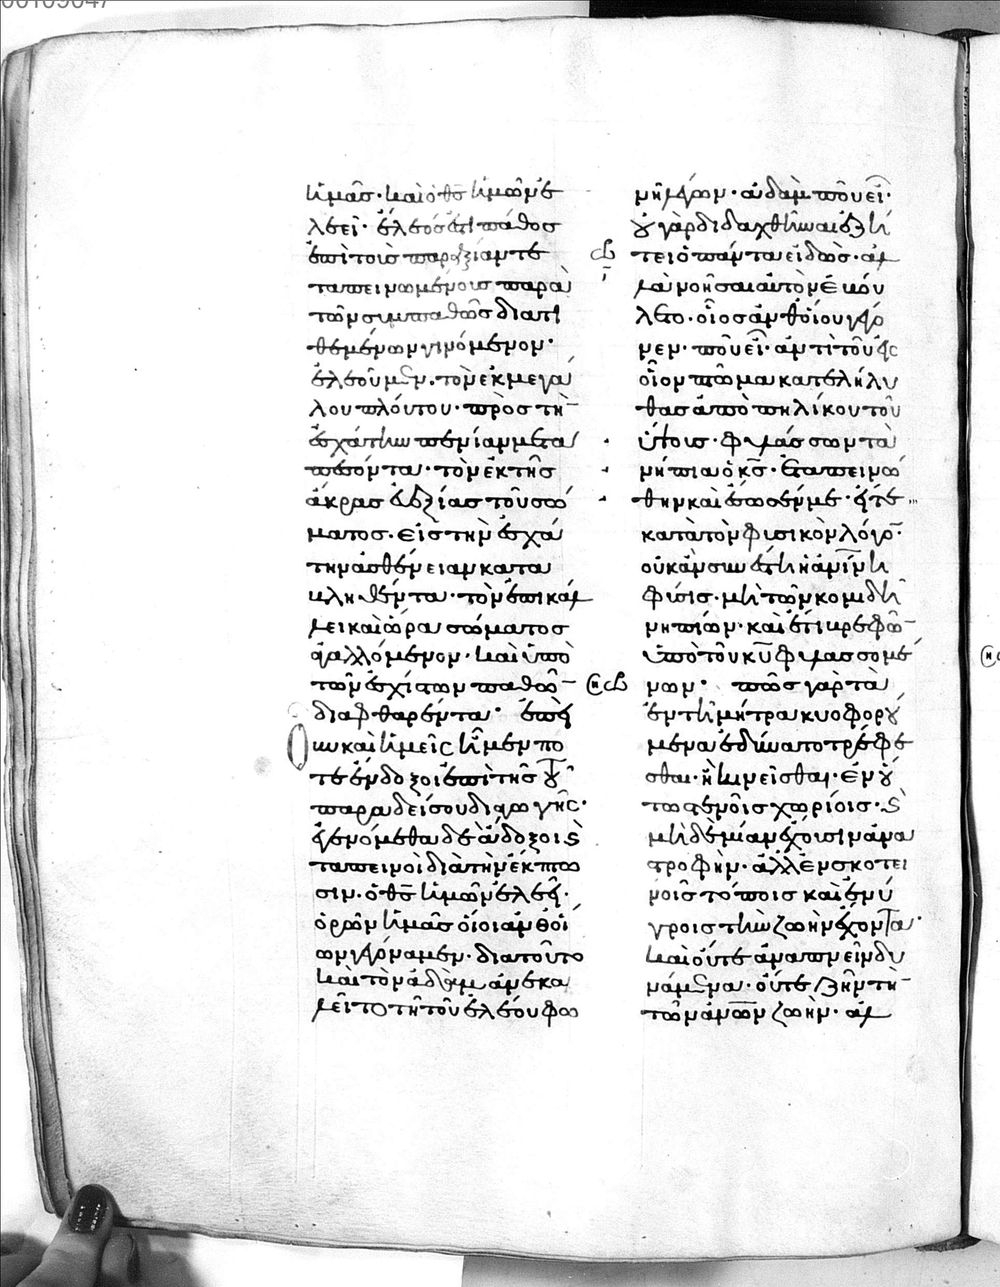 ἡμᾶς· καὶ ὁ θς ἡμῶν ἐ
λεεῖ· ἔλεός ἐστι πάθος
ἐπὶ τοῖς παρ' ἀξίαν τε
ταπεινωμένοις παρὰ
τῶν συμπαθῶς διατι
θεμένων γινόμενον·
ἐλεοῦμεν. τὸν ἐκ μεγά
λου πλούτου· πρὸς τὴν
ἐσχάτην πενίαν μετα
πεσόντα· τὸν ἐκ τῆς
ἄκρας εὐεξίας τοῦ σώ
ματος. εἰς τὴν ἐσχά
την ἀσθένειαν κατα
κλιθέντα· τὸν ἐπὶ κάλ
λει καὶ ὥρα σώματος
ἀγαλλόμενον· καὶ ὑπὸ
τῶν αἰσχίστων παθῶν
διαφθαρέντα· ἐπεὶ
οὖν καὶ ἡμεῖς ἦμέν πο
τε ἔνδοξοι ἐπὶ τῆς τοῦ
παραδείσου διαγωγῆς·
γενόμεθα δὲ ἄδοξοι καὶ
ταπεινοὶ διὰ τὴν ἔκπτω
σιν. ὁ θς ἡμῶν ἐλεεῖ·
ὁρῶν ἡμᾶς οἷοι ἀνθ' οἵ
ων γεγόναμεν· διὰ τοῦτο
καὶ τὸν ἀδὰμ ἀνεκα
λεῖτο τῇ τοῦ ἐλέου φω
νῇ λέγων· ἀδὰμ ποῦ εἶ·
οὐ γὰρ διδαχθῆναι ἐζή
τει ὁ πάντα εἰδώς· ἀλ
λὰ νοῆσαι αὐτὸν ἐβού
λετο· οἷος ἀνθ' οἵου γέγο
νεν· ποῦ εἶ· ἀντὶ τοῦ εἰς
οἷον πτῶμα κατελήλυ
θας ἀπὸ πηλίκου τοῦ
ὕψους· φυλάσσων τὰ
νήπια ὁ κς· ἐταπεινώ
θην καὶ ἔσωσέν με· εἴτε
κατὰ τὸν φυσικὸν λόγον·
οὐκ ἂν συνέστη ἡ ἀνίνη
φύσις· μὴ τῶν κομιδῇ
νηπίων· καὶ ἔτι βρεφῶν
ὑπὸ τοῦ κυ φυλασσομέ
νων· πῶς γὰρ τὰ
ἐν τῇ μήτρα κυοφορού
μενα ἐδύνατο τρέφε
σθαι· ἢ κινεῖσθαι· ἐν οὕ
τω στενοῖς χωρίοις· καὶ
μηδεμίαν ἔχουσιν ἀνα
στροφήν· ἀλλ' ἐν σκοτει
νοῖς τόποις καὶ ἐνύ
γροις τὴν ζωὴν ἔχοντα·
καὶ οὔτε ἀναπνεῖν δυ
νάμενα· οὔτε ζῆν τὴν
τῶν ἀνων ζωήν· ἀλ